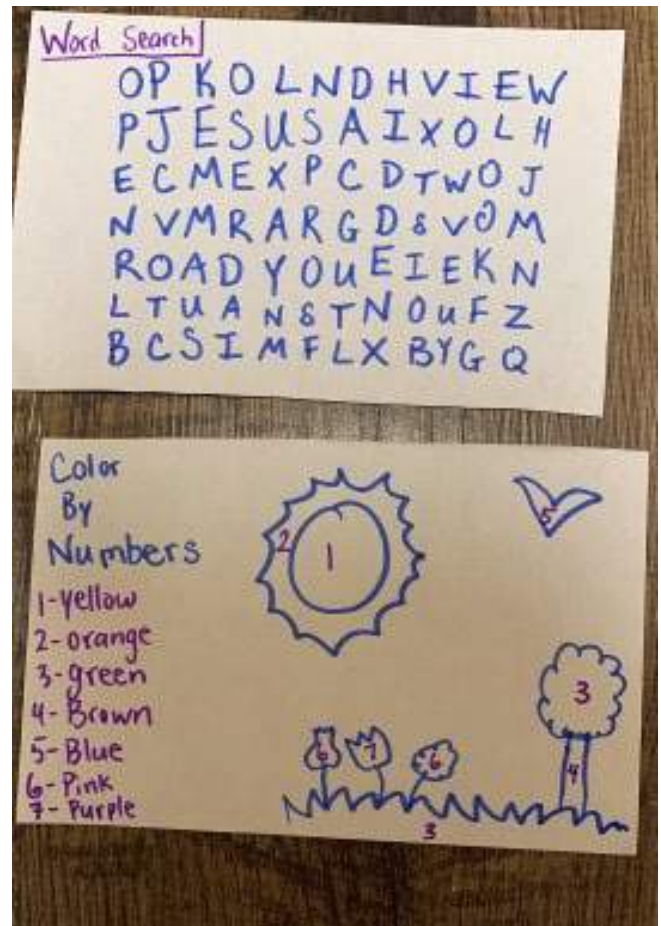 Word Search
OP K O L N D H V I E W
P J E S U S A I X O L H
E C M E X P C D T W O J
N V M R A R G D S V O M
R O A D Y O U E I E K N
L T U A N S T N O U F Z
B C S I M F L X B Y G Q
Color
By
Numbers
1-yellow
2-orange
3-green
4-Brown
5-Blue
6-Pink
7-Purple
2
1
5
3
6
7
6
4
3